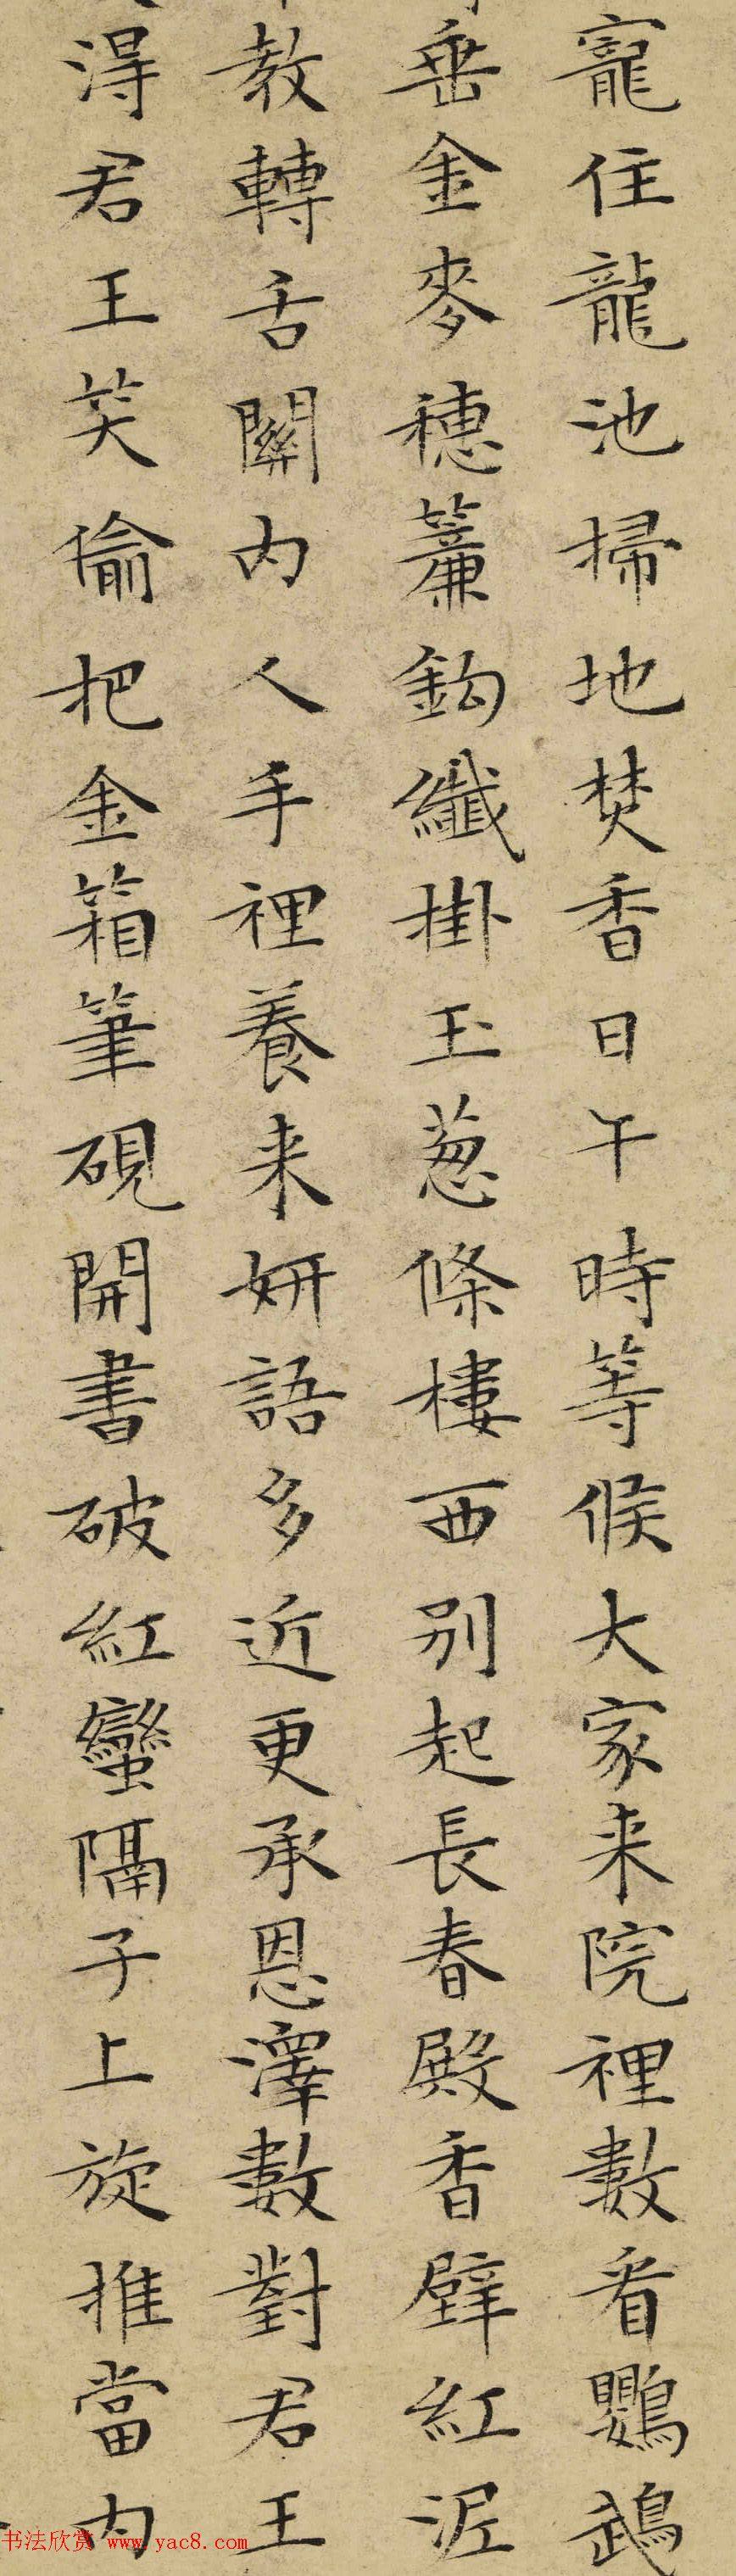 寵住龍池掃地焚香日午時等候大家来院裡數看鸚鵡
垂金麥穗簾鈎纖掛玉葱條樓西别起長春殿香壁紅泥
教轉舌關内人手裡養来妍語多近更承恩澤數對君王
淂君王笑偷把金箱筆硯開書破紅蠻隔子上旋推當内
书法欣赏 www.yac8.com